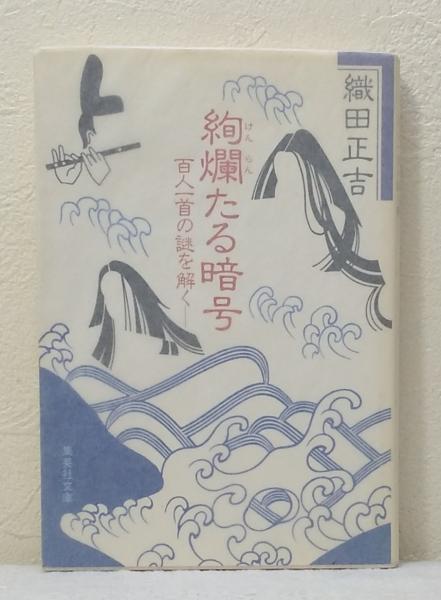 織田正吉
けんらん
絢爛たる暗号
百人一首の謎を解く──
集英社文庫